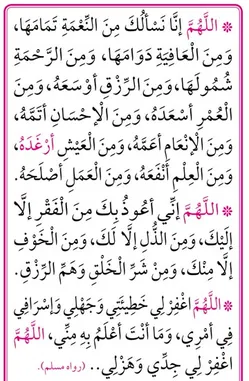 * اللَّهُمَّ إِنَّا نَسْأَلُكَ مِنَ النِّعْمَةِ تَمَامَهَا،
وَمِنَ الْعَافِيَةِ دَوَامَهَا، وَمِنَ الرَّحْمَةِ
شُمُولَهَا، وَمِنَ الرِّزْقِ أَوْسَعَهُ، وَمِنَ
الْعُمْرِ أَسْعَدَهُ، وَمِنَ الْإِحْسَانِ أَتَمَّهُ،
وَمِنَ الْإِنْعَامِ أَعَمَّهُ، وَمِنَ الْعَيْشِ أَرْغَدَهُ،
وَمِنَ الْعِلْمِ أَنْفَعَهُ، وَمِنَ الْعَمَلِ أَصْلَحَهُ.
* اللَّهُمَّ إِنِّي أَعُوذُ بِكَ مِنَ الْفَقْرِ إِلَّا
إِلَيْكَ، وَمِنَ الذُّلِّ إِلَّا لَكَ، وَمِنَ الْخَوْفِ
إِلَّا مِنْكَ، وَمِنْ شَرِّ الْخَلْقِ وَهَمِّ الرِّزْقِ.
* اللَّهُمَّ اغْفِرْ لِي خَطِيئَتِي وَجَهْلِي وَإِسْرَافِي
فِي أَمْرِي، وَمَا أَنْتَ أَعْلَمُ بِهِ مِنِّي، اللَّهُمَّ
اغْفِرْ لِي جِدِّي وَهَزْلِي.. (رواه مسلم).